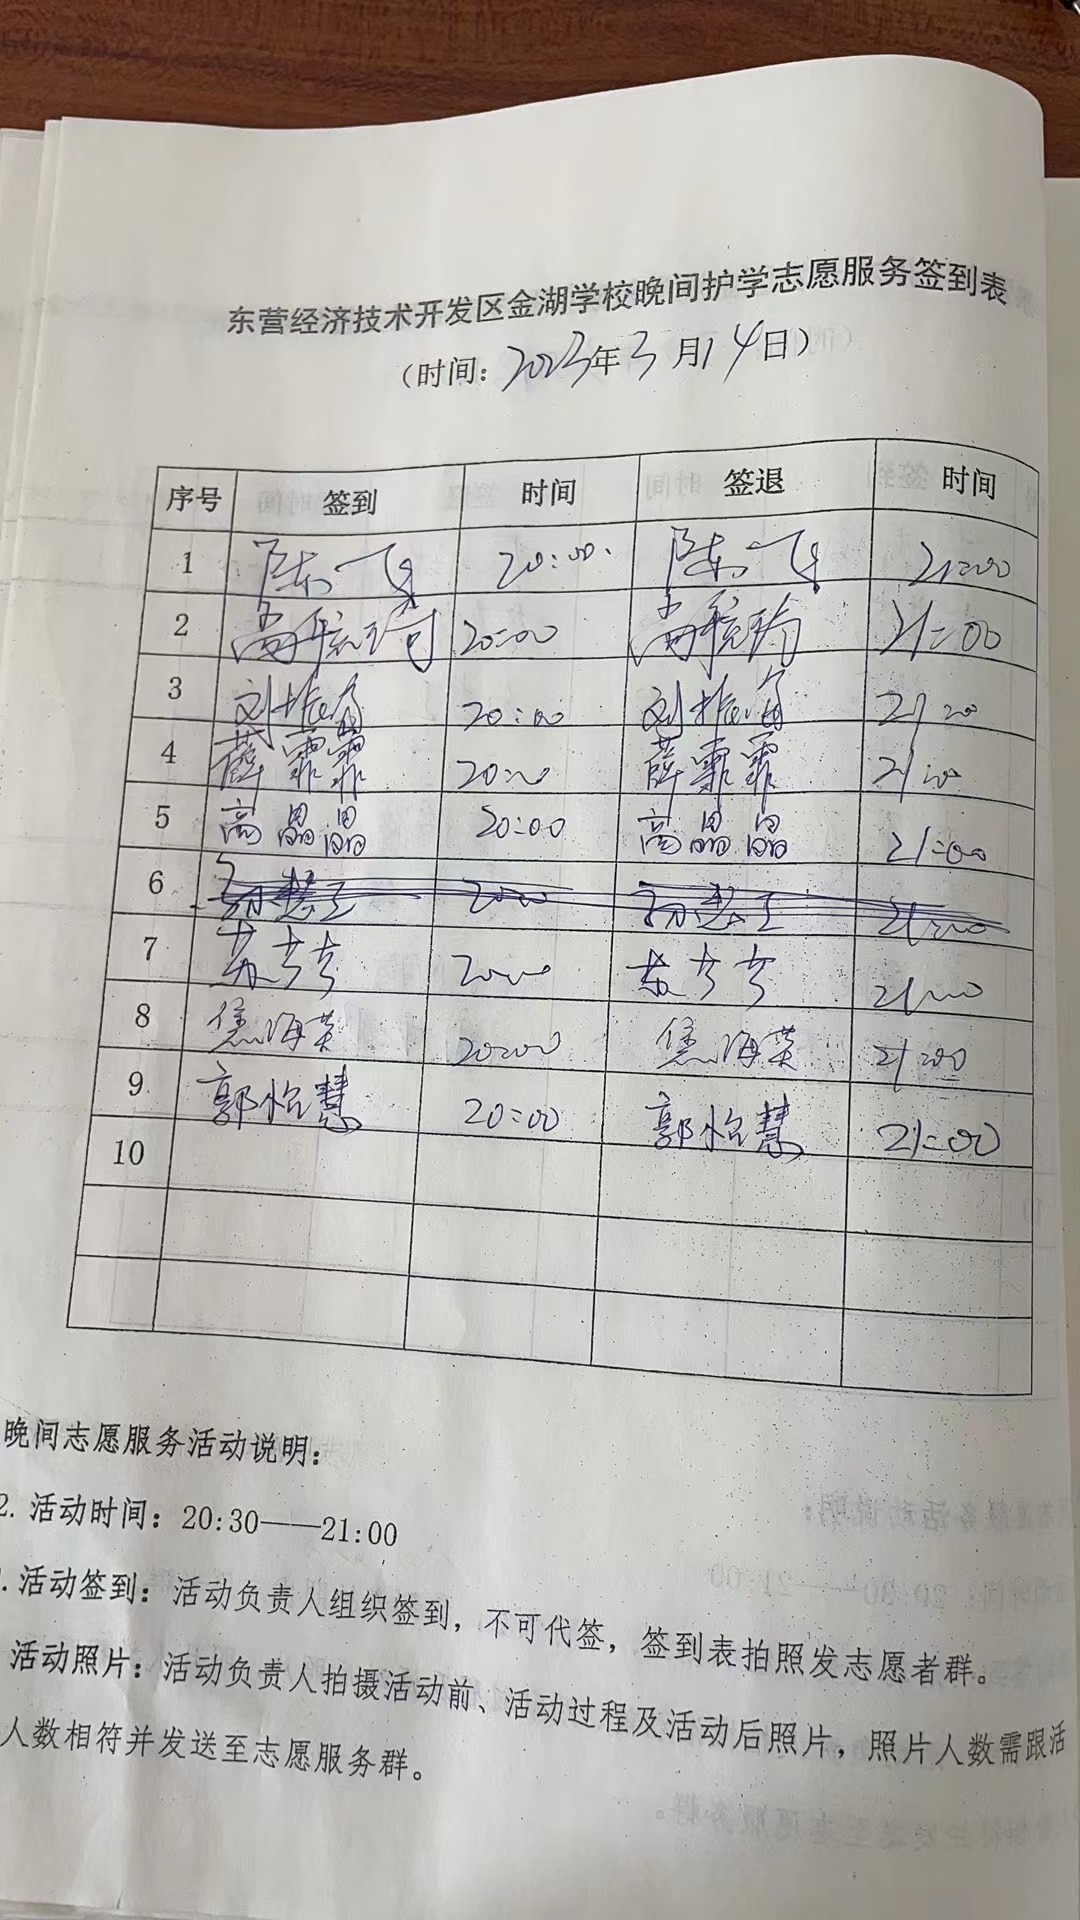 东营经济技术开发区金湖学校晚间护学志愿服务签到表
（时间：2023年3月14日）
序号 签到 时间 签退 时间
1 陈飞 20:00. 陈飞 21:00
2 尚 20:00 尚 21:00
3 刘振 20:00 刘振 21:00
4 薛霏霏 20:00 薛霏霏 21:00
5 高晶晶 20:00 高晶晶 21:00
6 20:00 21:00
7 苏兰兰 20:00 苏兰兰 21:00
8 焦海英 20:00 焦海英 21:00
9 郭怡慧 20:00 郭怡慧 21:00
10
晚间志愿服务活动说明：
2. 活动时间：20:30——21:00
. 活动签到：活动负责人组织签到，不可代签，签到表拍照发志愿者群。
活动照片：活动负责人拍摄活动前、活动过程及活动后照片，照片人数需跟活
人数相符并发送至志愿服务群。